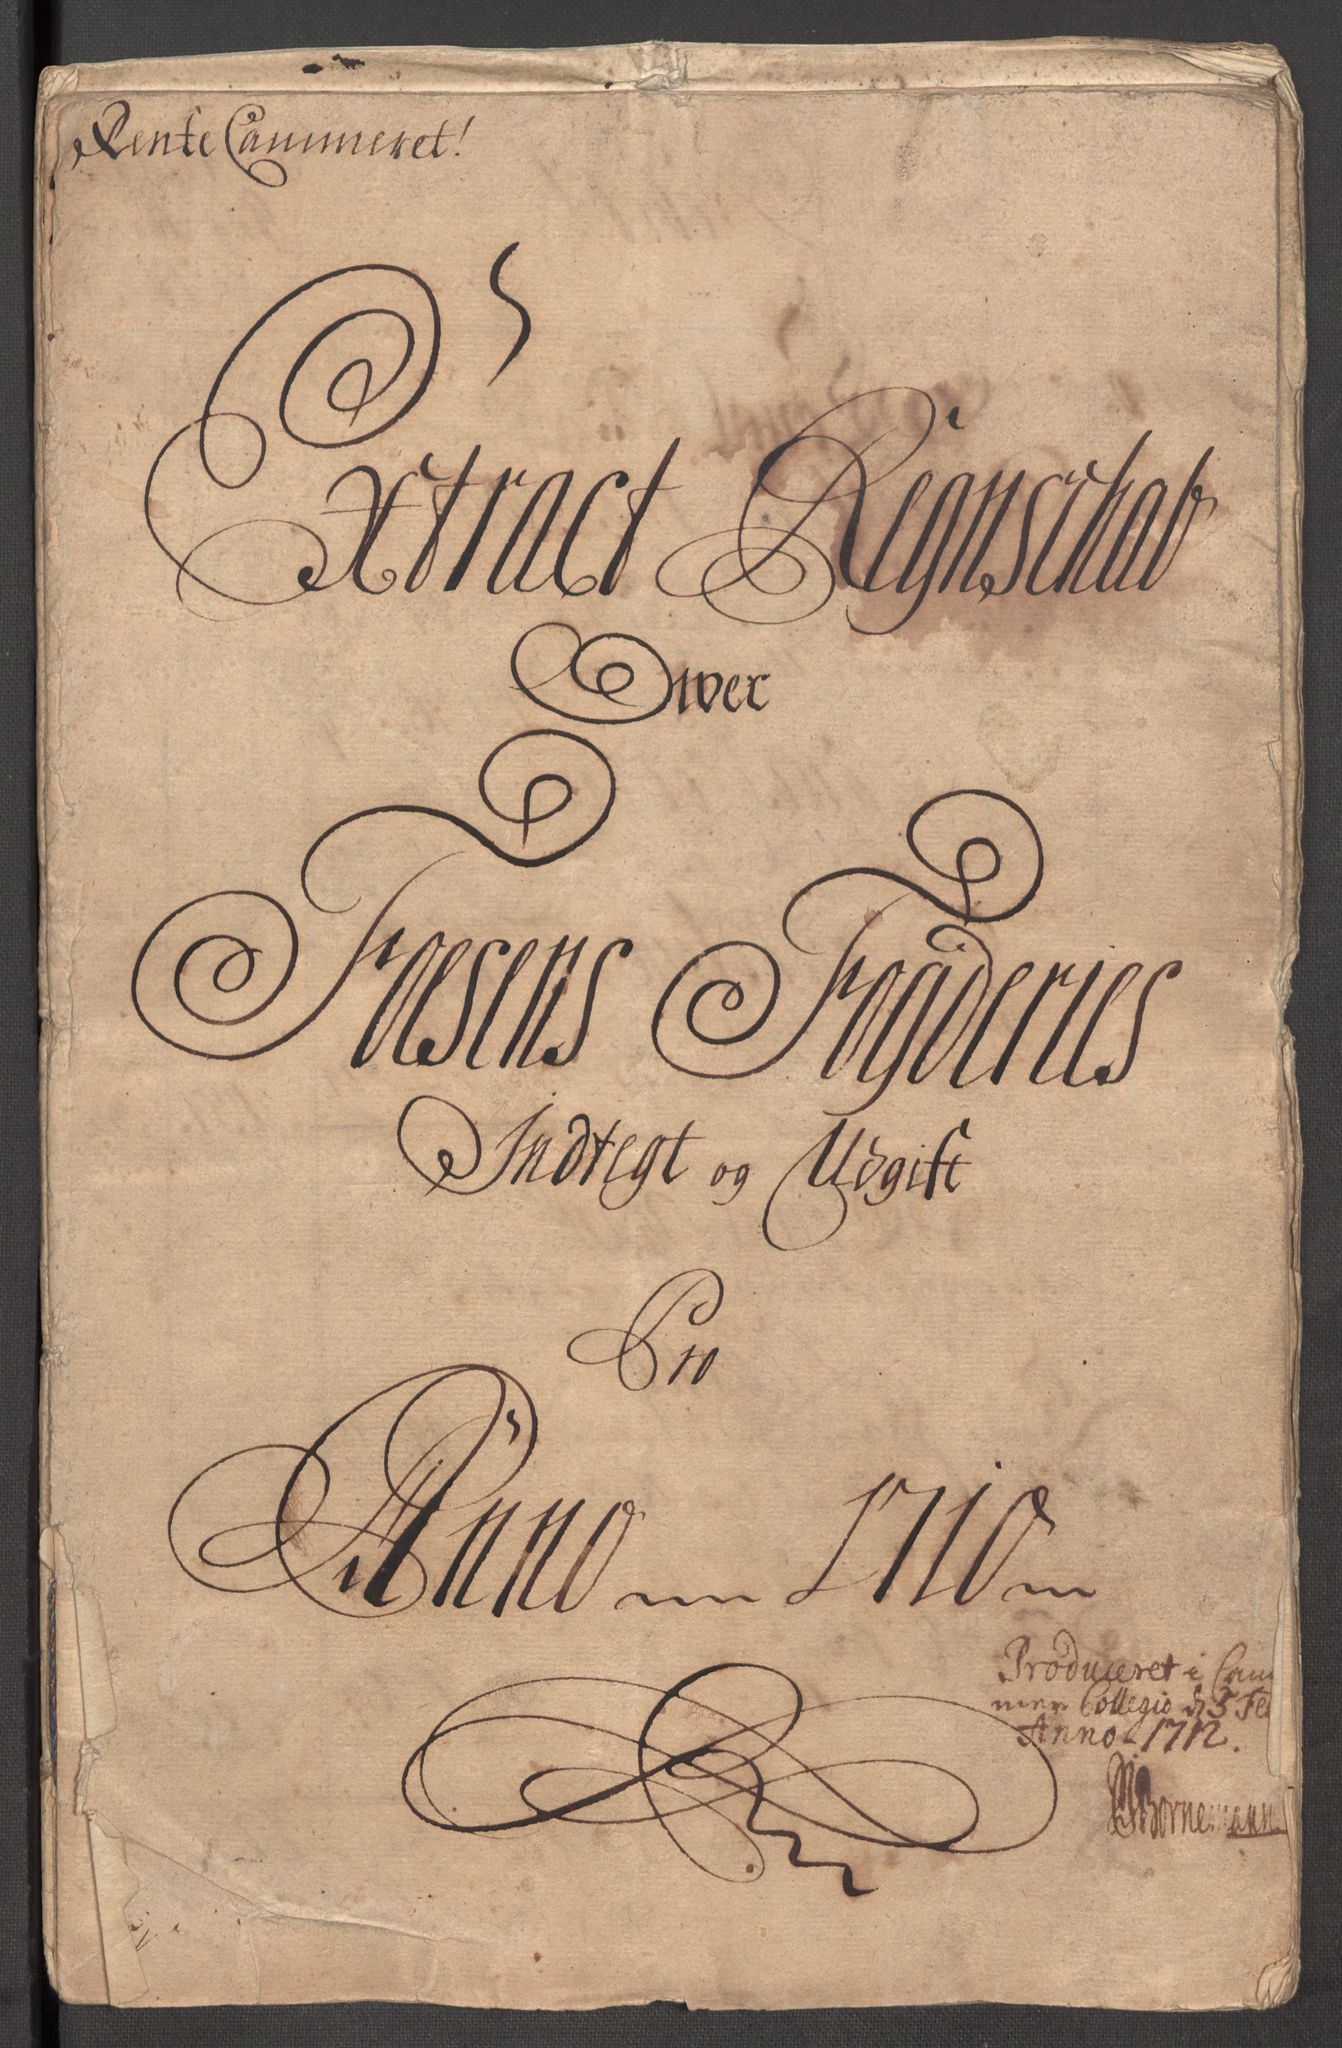 Rente Cammeret!
Extract Regnschab
Over
Fosens Fogderies
Indtegt og Udgift
Pro
Anno 1710
Produceret i Cam
mer Collegio d 3 Fe
Anno 1712.
Bornemann